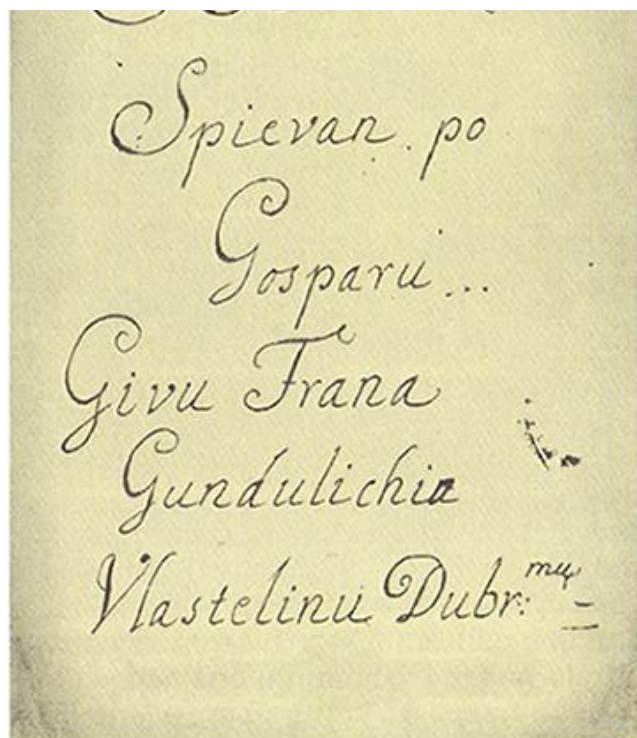 Spievan po
Gosparu...
Givu Frana
Gundulichia
Vlastelinu Dubr: mu